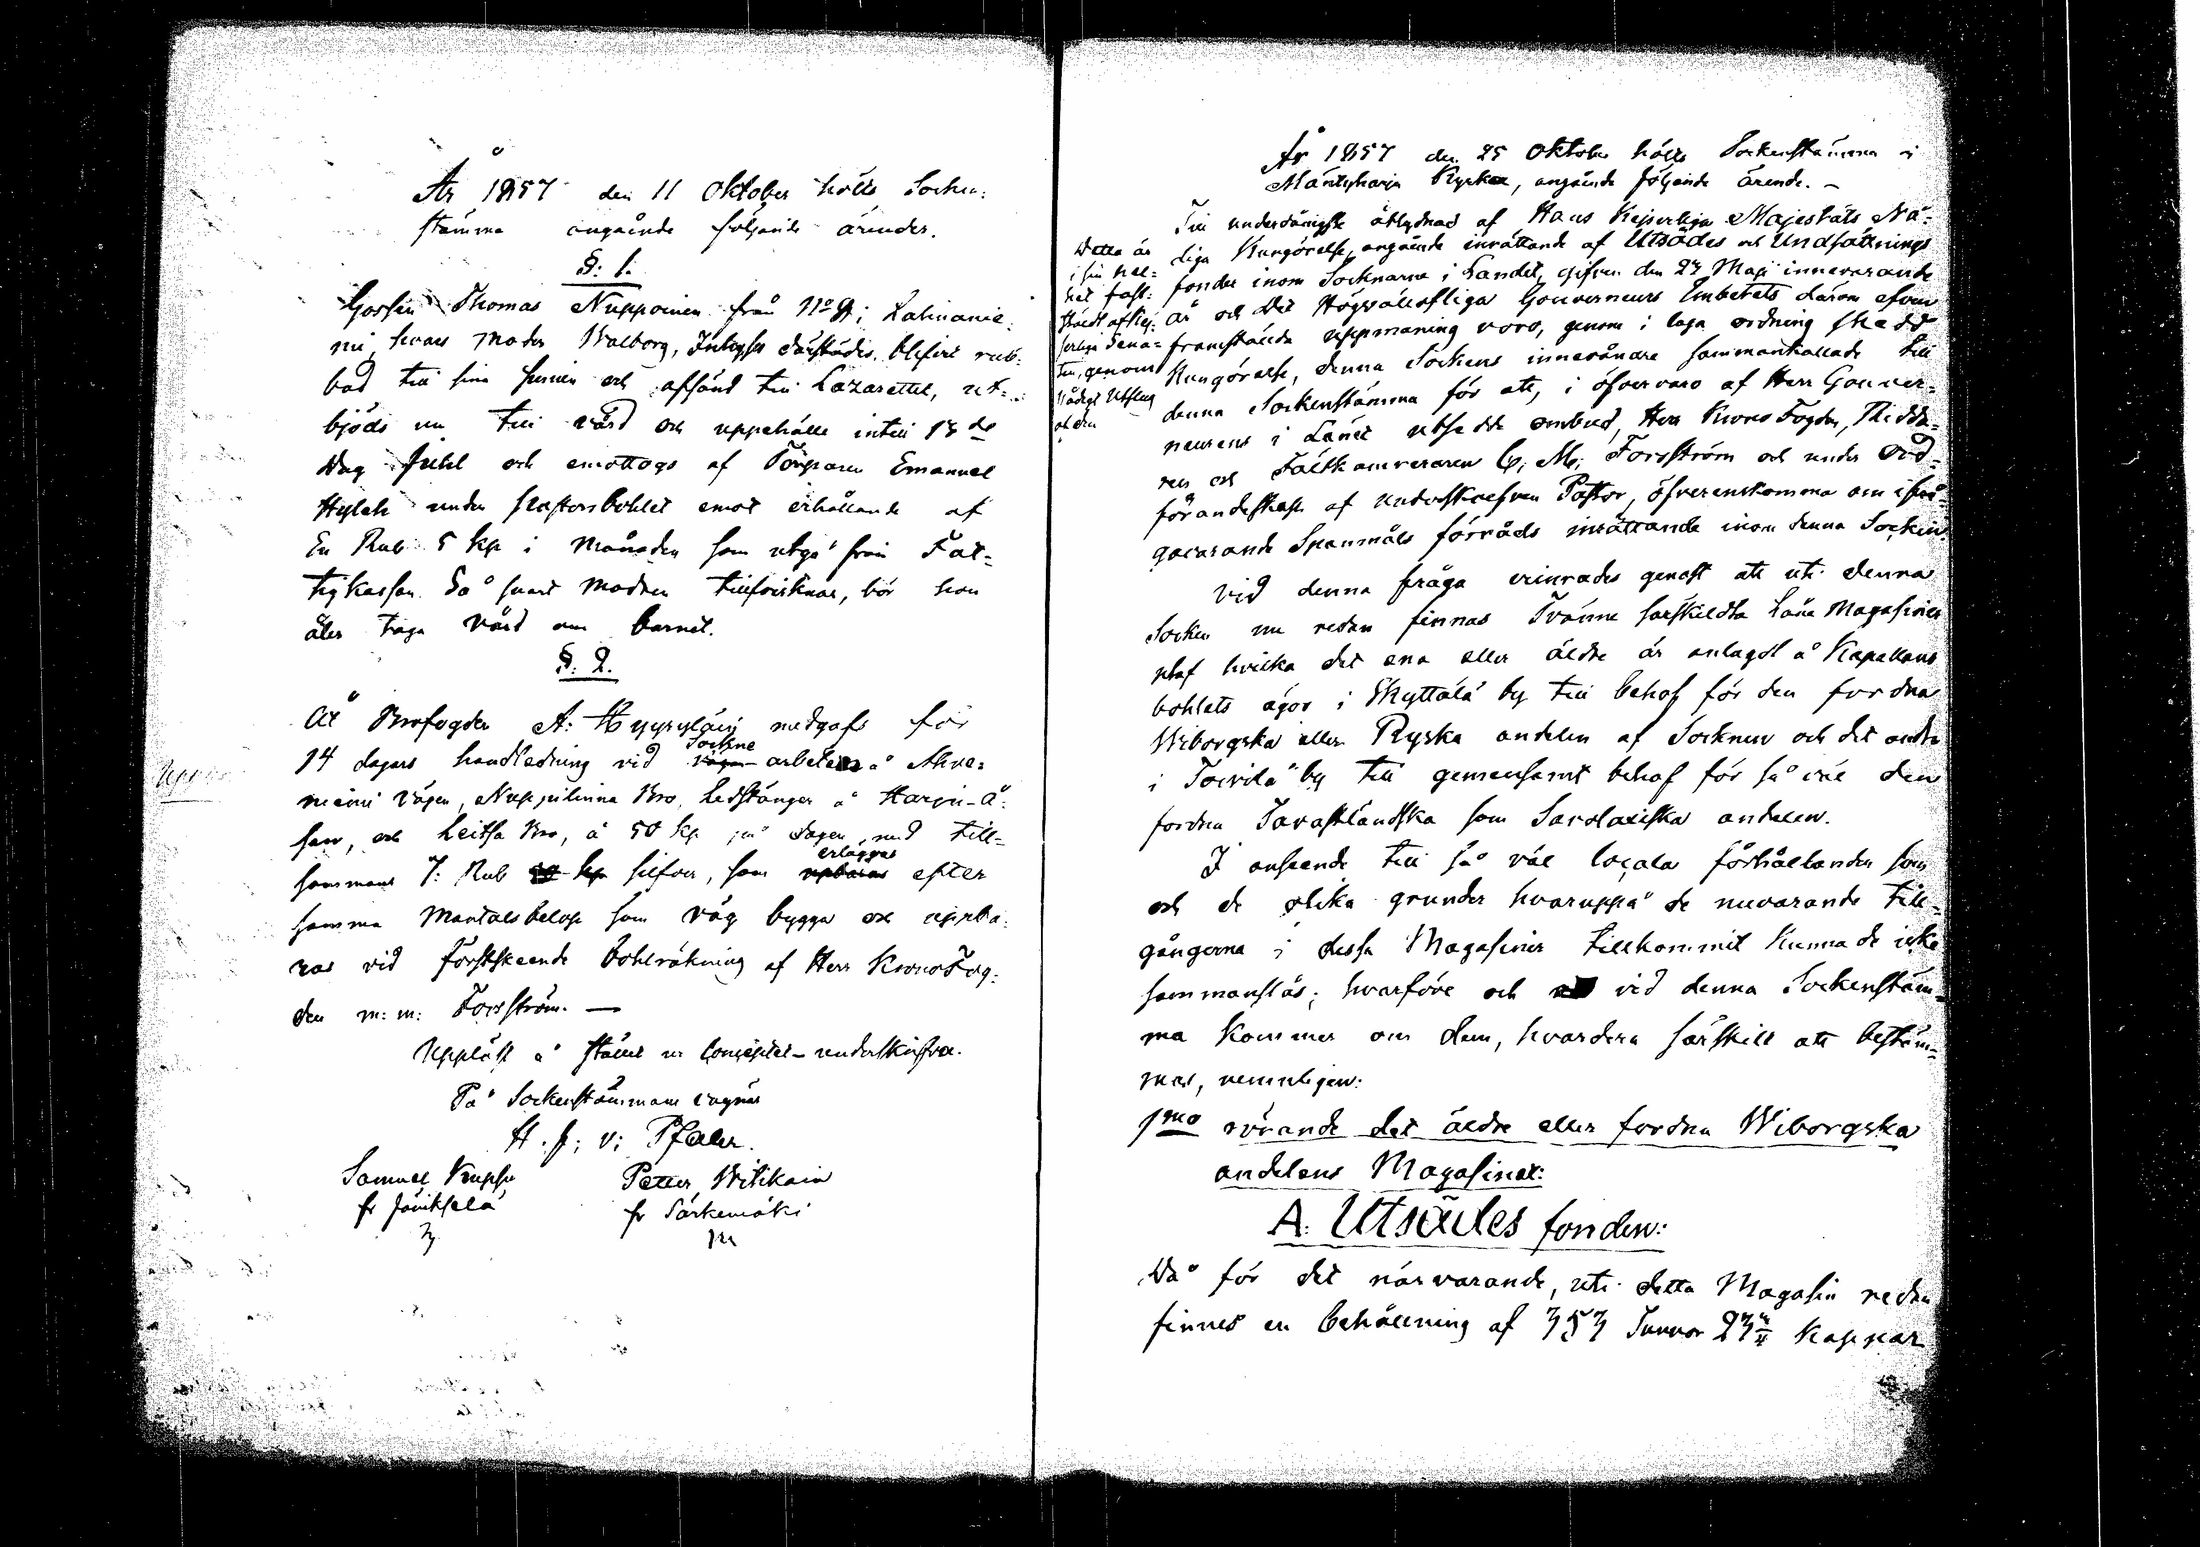 År 1857 den 11 Oktober hölls Socken:
stämma angående följande ärender.
§: 1.
Gossen Thomas Nuppoinen från No 9 i Lahnanie,
mi, hvars moder Walborg, Inhyses därstädes, blifvit rub:
bad till sina sinnen och afsänd till Lazarettet, ut=
bjöds nu till vård och uppehälle intill 13de
Dag Juhl och emottogs af Torparen Emanuel
under Pastorsbohlet emot erhållande af
En Rub 5 kp i Månaden som utgå från Fat=
tigkassan. Så snart modren tillfrisknar, bör hon
åter taga vård om barnet.
§. 2.
Åt Brofogden A: Hyyryläin medgafs för
14 dagars handledning vid Sockne arbeten å Ahve=
meini vägen, Nuppilinna Bro, Ledstänger å Harju-å:
sen, och Leitsa Bro, à 50 kp på dagen, med till=
sammans 7: Rub silfver, som erlägges efter
samma Mantalsbelopp som väg bygge och uppbä:
ras vid förstskeende Bohlräkning af Herr KronoFog:
den m: m: Forsström. —
Uppläst å stället ur Conceptet - underskrifva.
På Sockenstämmans vägnar
H. f: v: Pfaler.
Samuel Kruppu Petter Witikain
fr Jäniksala fr Särkemäki
År 1857 den 25 Oktober hölls Sockenstämma i
Mäntyharju Kyrka, angående följande ärende. -
Till underdånigste åtlydnad af Hans Kejserliga Majestäts Nå=
diga Kungörelse, angående inrättande af Utsädes och Undsättnings
fonder inom Socknarne i Landet, gifven den 27 Maji innevarande
år och Det Högvällofliga Gouverneurs Embetets därom äfven
framstälda uppmaning voro, genom i laga ordning skedd
Kungörelse, denna Sockens innevånare sammankallade till
denna Sockenstämma för att, i öfvervaro af Herr Gouver=
neurens i Länet utsedde ombud, Herr Krono Fogden, Ridda=
ren och Fältkamreraren C: M: Forsström och under ord=
förandeskap af underskrefven Pastor, öfverenskomma om ifrå=
gavarande Spanmåls förråds inrättande inom denna Socken.
Detta är
i sin hel=
het fast:
stäldt af Kej:
serliga Sena=
ten, genom
Nådigt Utslag
af den
Vid denna fråga erinrades genast att uti denna
Socken nu redan finnas Tvänne särskildta Låne Magasiner
utaf hvilka det ena eller äldre är anlagdt å Kapellans
bohlets ägor i Kyttälä by till behof för den fordna
Wiborgska eller Ryska andelen af Socknen och det andra
i Toivila by till gemensamt behof för så väl den
fordna Tavastländska som Savolaxiska andelen.
I anseende till så väl locala förhållanden som
och de olika grunder hvaruppå de nuvarande till=
gångerna i dessa Magasiner tillkommit kunna de icke
sammanslås; hvarföre och vid denna Sockenstäm=
ma kommer om dem, hvardera särskilt att bestäm=
mas, nemligen:
1mo rörande det äldre eller fordna Wiborgska
andelens Magasinet:
A: Utsädes fonden:
Då för det närvarande, uti detta Magasin redan
finnes en behållning af 353 Tunnor 23 Kappar